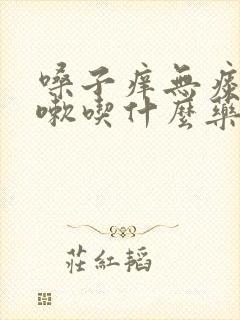 嗓子痒無痰
嗽喫什麼藥
莊紅韜